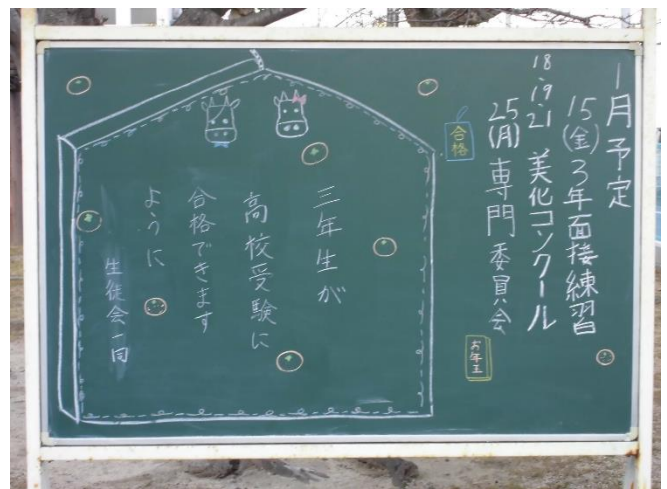 1月予定
15(金)3年面接練習
18.19.21 美化コンクール
25(月)専門委員会
合格
お年玉
三年生が
高校受験に
合格できます
ように
生徒会一同